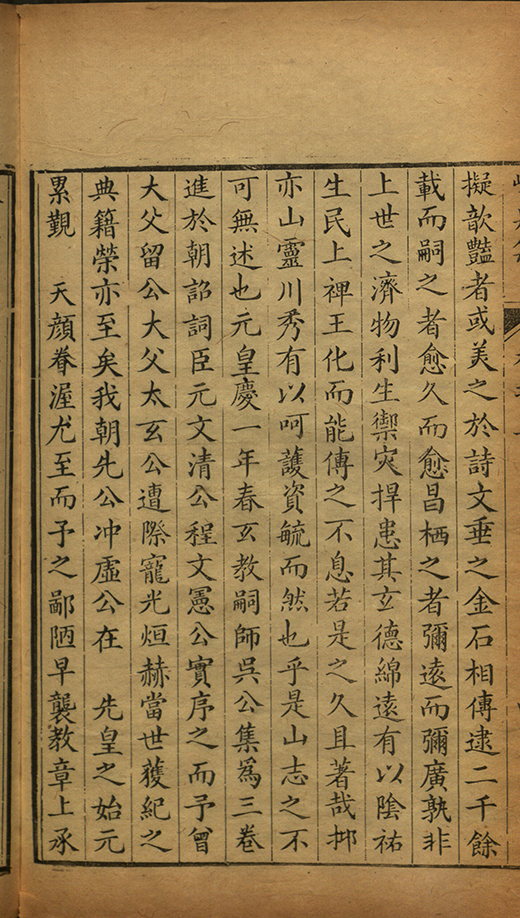 擬歆豔者或美之於詩文垂之金石相傳逮二千餘
載而嗣之者愈久而愈昌栖之者彌遠而彌廣孰非
上世之濟物利生禦灾捍患其玄德綿遠有以陰祐
生民上裨王化而能傳之不息若是之久且著哉抑
亦山靈川秀有以呵護資毓而然也乎是山志之不
可無述也元皇慶一年春玄教嗣師吳公集爲三卷
進於朝詔詞臣元文清公程文憲公實序之而予曾
大父留公大父太玄公遭際寵光烜赫當世獲紀之
典籍榮亦至矣我朝先公冲虛公在　先皇之始元
累覲　天顏眷渥尤至而予之鄙陋早襲教章上承